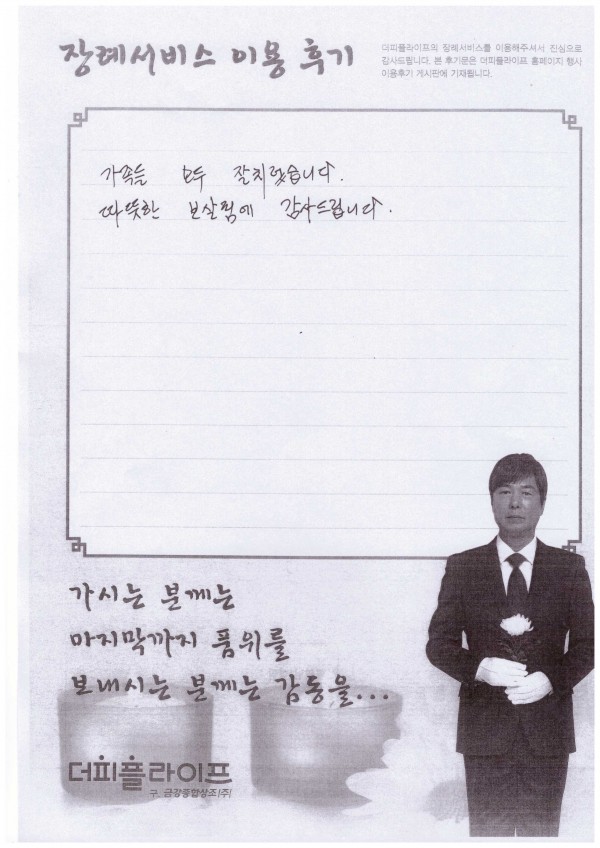 장례서비스 이용 후기
더피플라이프의 장례서비스를 이용해주셔서 진심으로
감사드립니다. 본 후기문은 더피플라이프 홈페이지 행사
이용후기 게시판에 기재됩니다.
가족들 모두 잘치렀습니다.
따뜻한 보살핌에 감사드립니다.
가시는 분께는
마지막까지 품위를
보내시는 분께는 감동을...
더피플라이프
구. 금강종합상조(주)